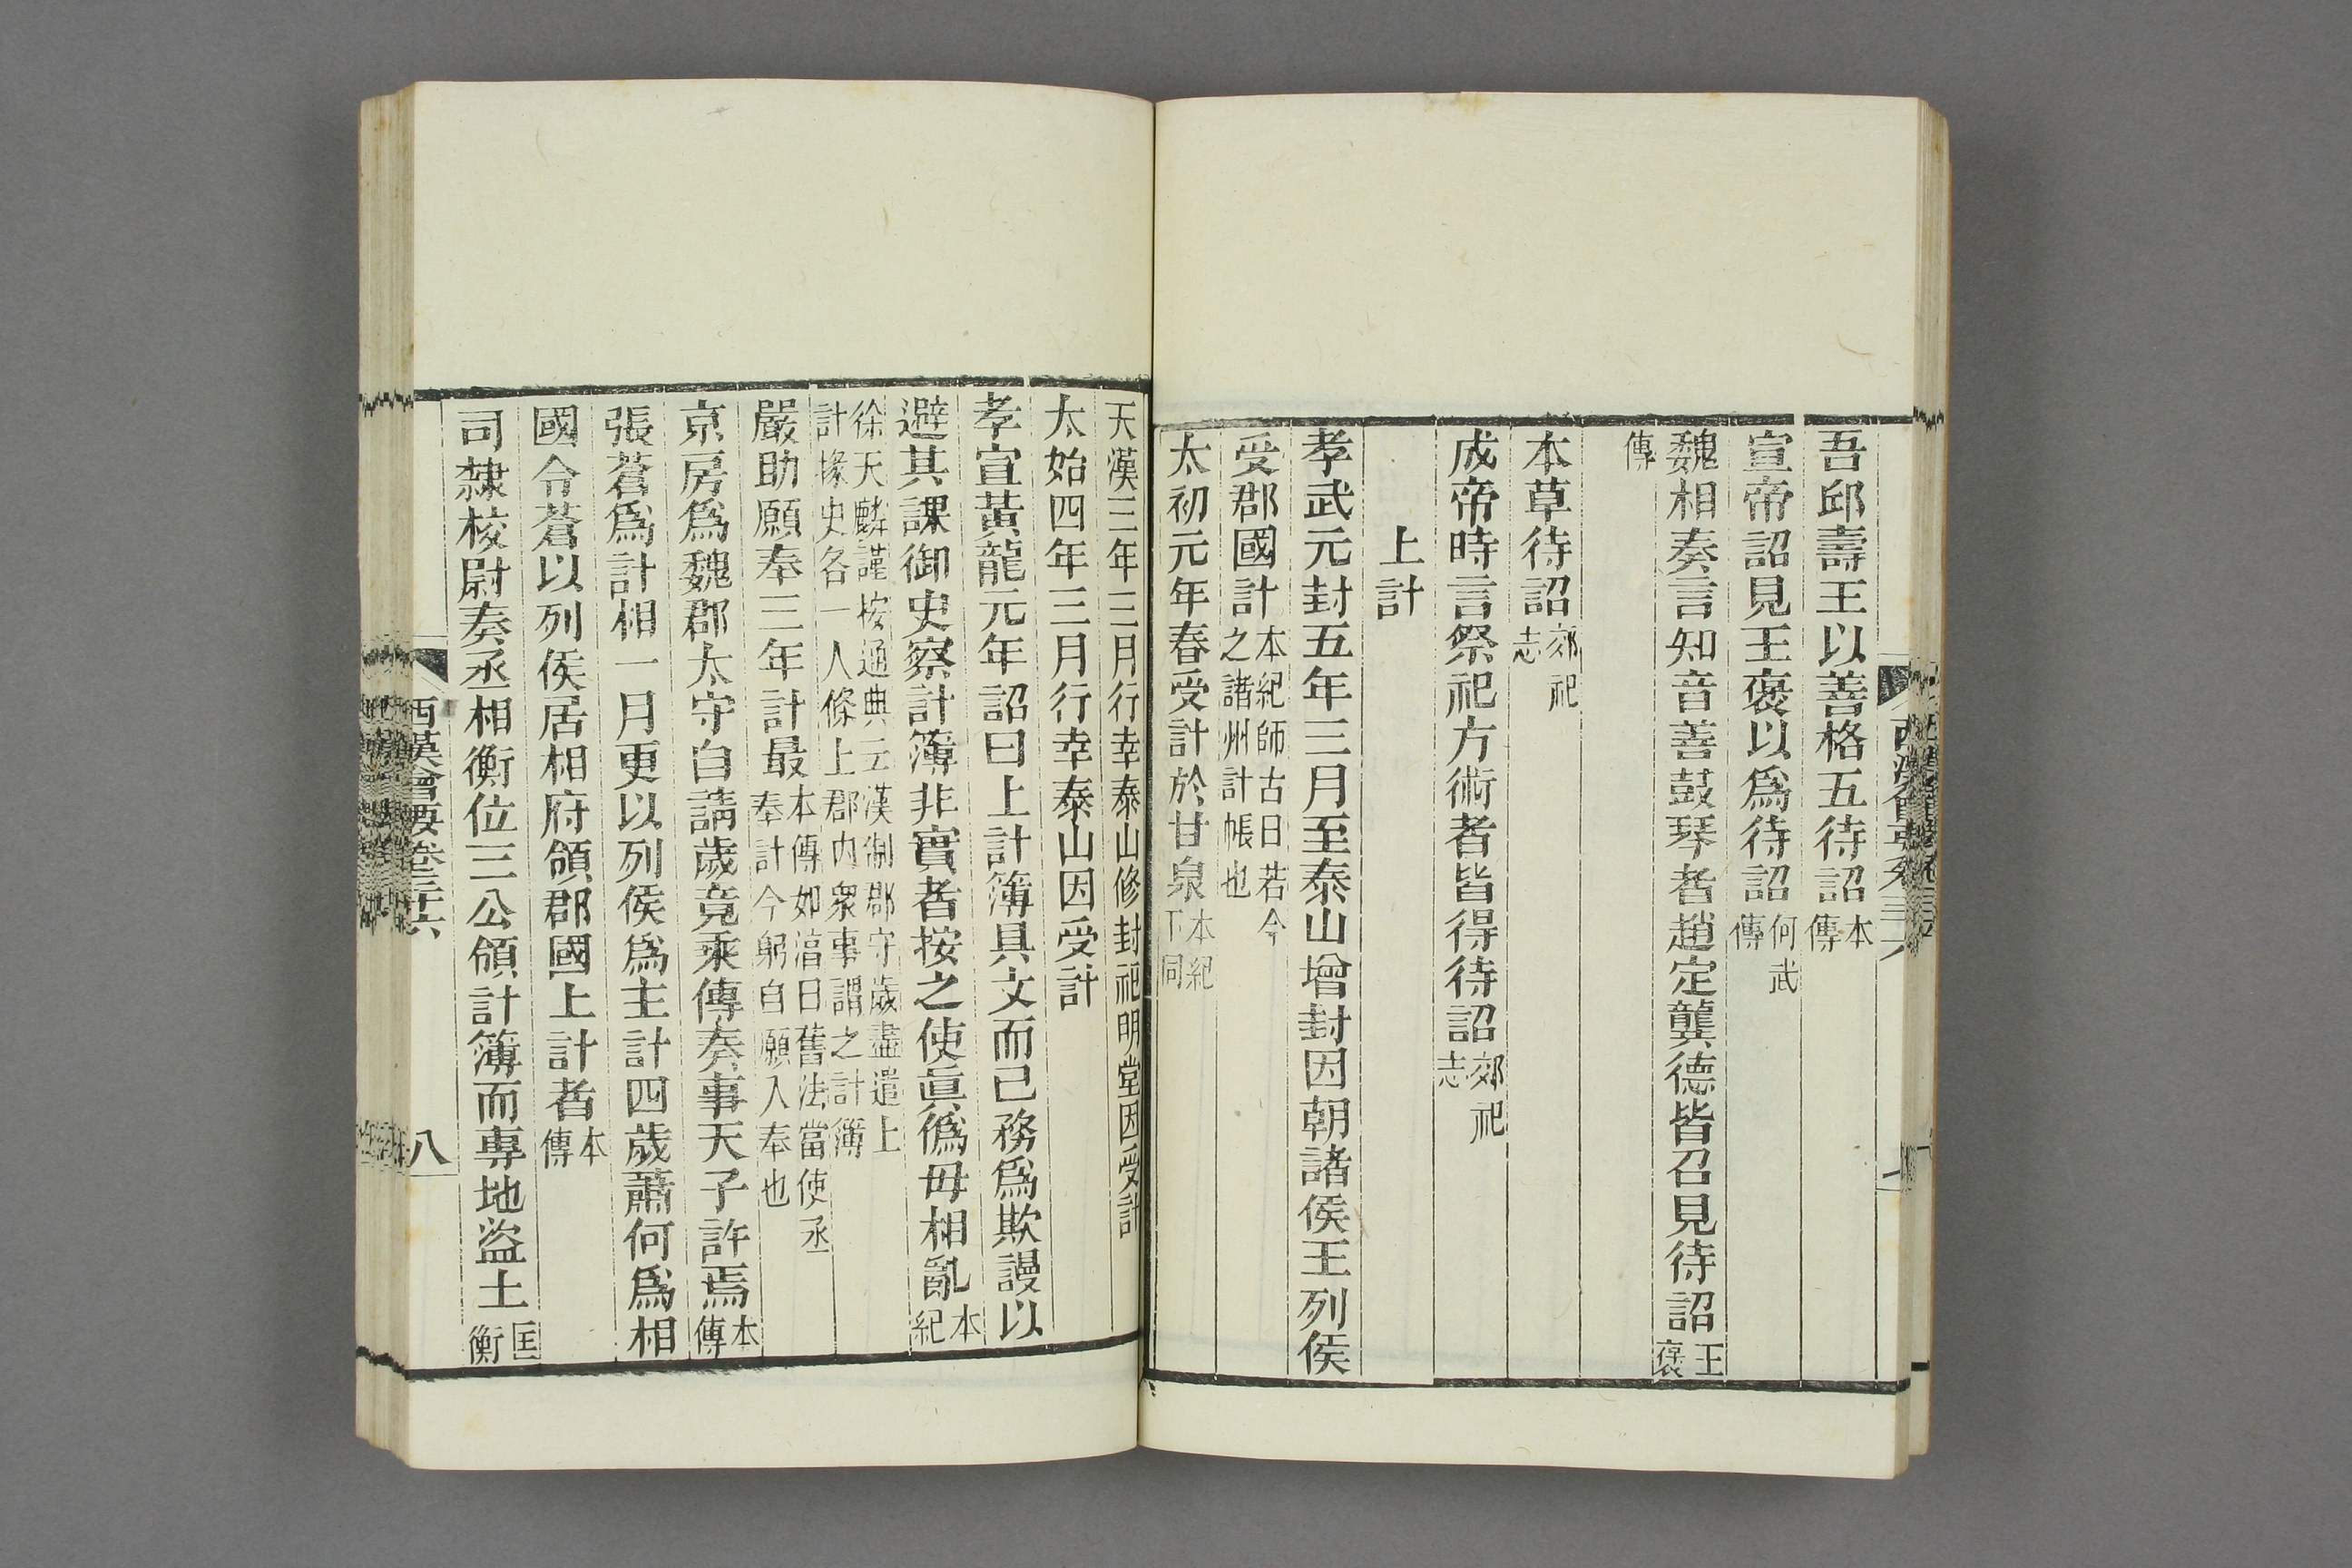 吾邱壽王以善格五待詔本傳
宣帝詔見王褒以爲待詔何武傳
魏相奏言知音善鼓琴者趙定龔德皆召見待詔王褒
傳
本草待詔郊祀志
成帝時言祭祀方術者皆得待詔郊祀志
上計
孝武元封五年三月至泰山增封因朝諸侯王列侯
受郡國計本紀師古曰若今之諸州計帳也
太初元年春受計於甘泉本紀下同
天漢三年三月行幸泰山修封祀明堂因受計
太始四年三月行幸泰山因受計
孝宣黃龍元年詔曰上計簿具文而已務爲欺謾以
避其課御史察計簿非實者按之使眞僞毋相亂本紀
徐天麟謹按通典云漢制郡守歲盡遣上
計掾史各一人條上郡內衆事謂之計簿
嚴助願奉三年計最本傳如淳曰舊法當使丞奉計今躬自願入奉也
京房爲魏郡太守自請歲竟乘傳奏事天子許焉本傳
張蒼爲計相一月更以列侯爲主計四歲蕭何爲相
國令蒼以列侯居相府領郡國上計者本傳
司隸校尉奏丞相衡位三公領計簿而專地盜土匡衡
西漢會要卷三十六
八